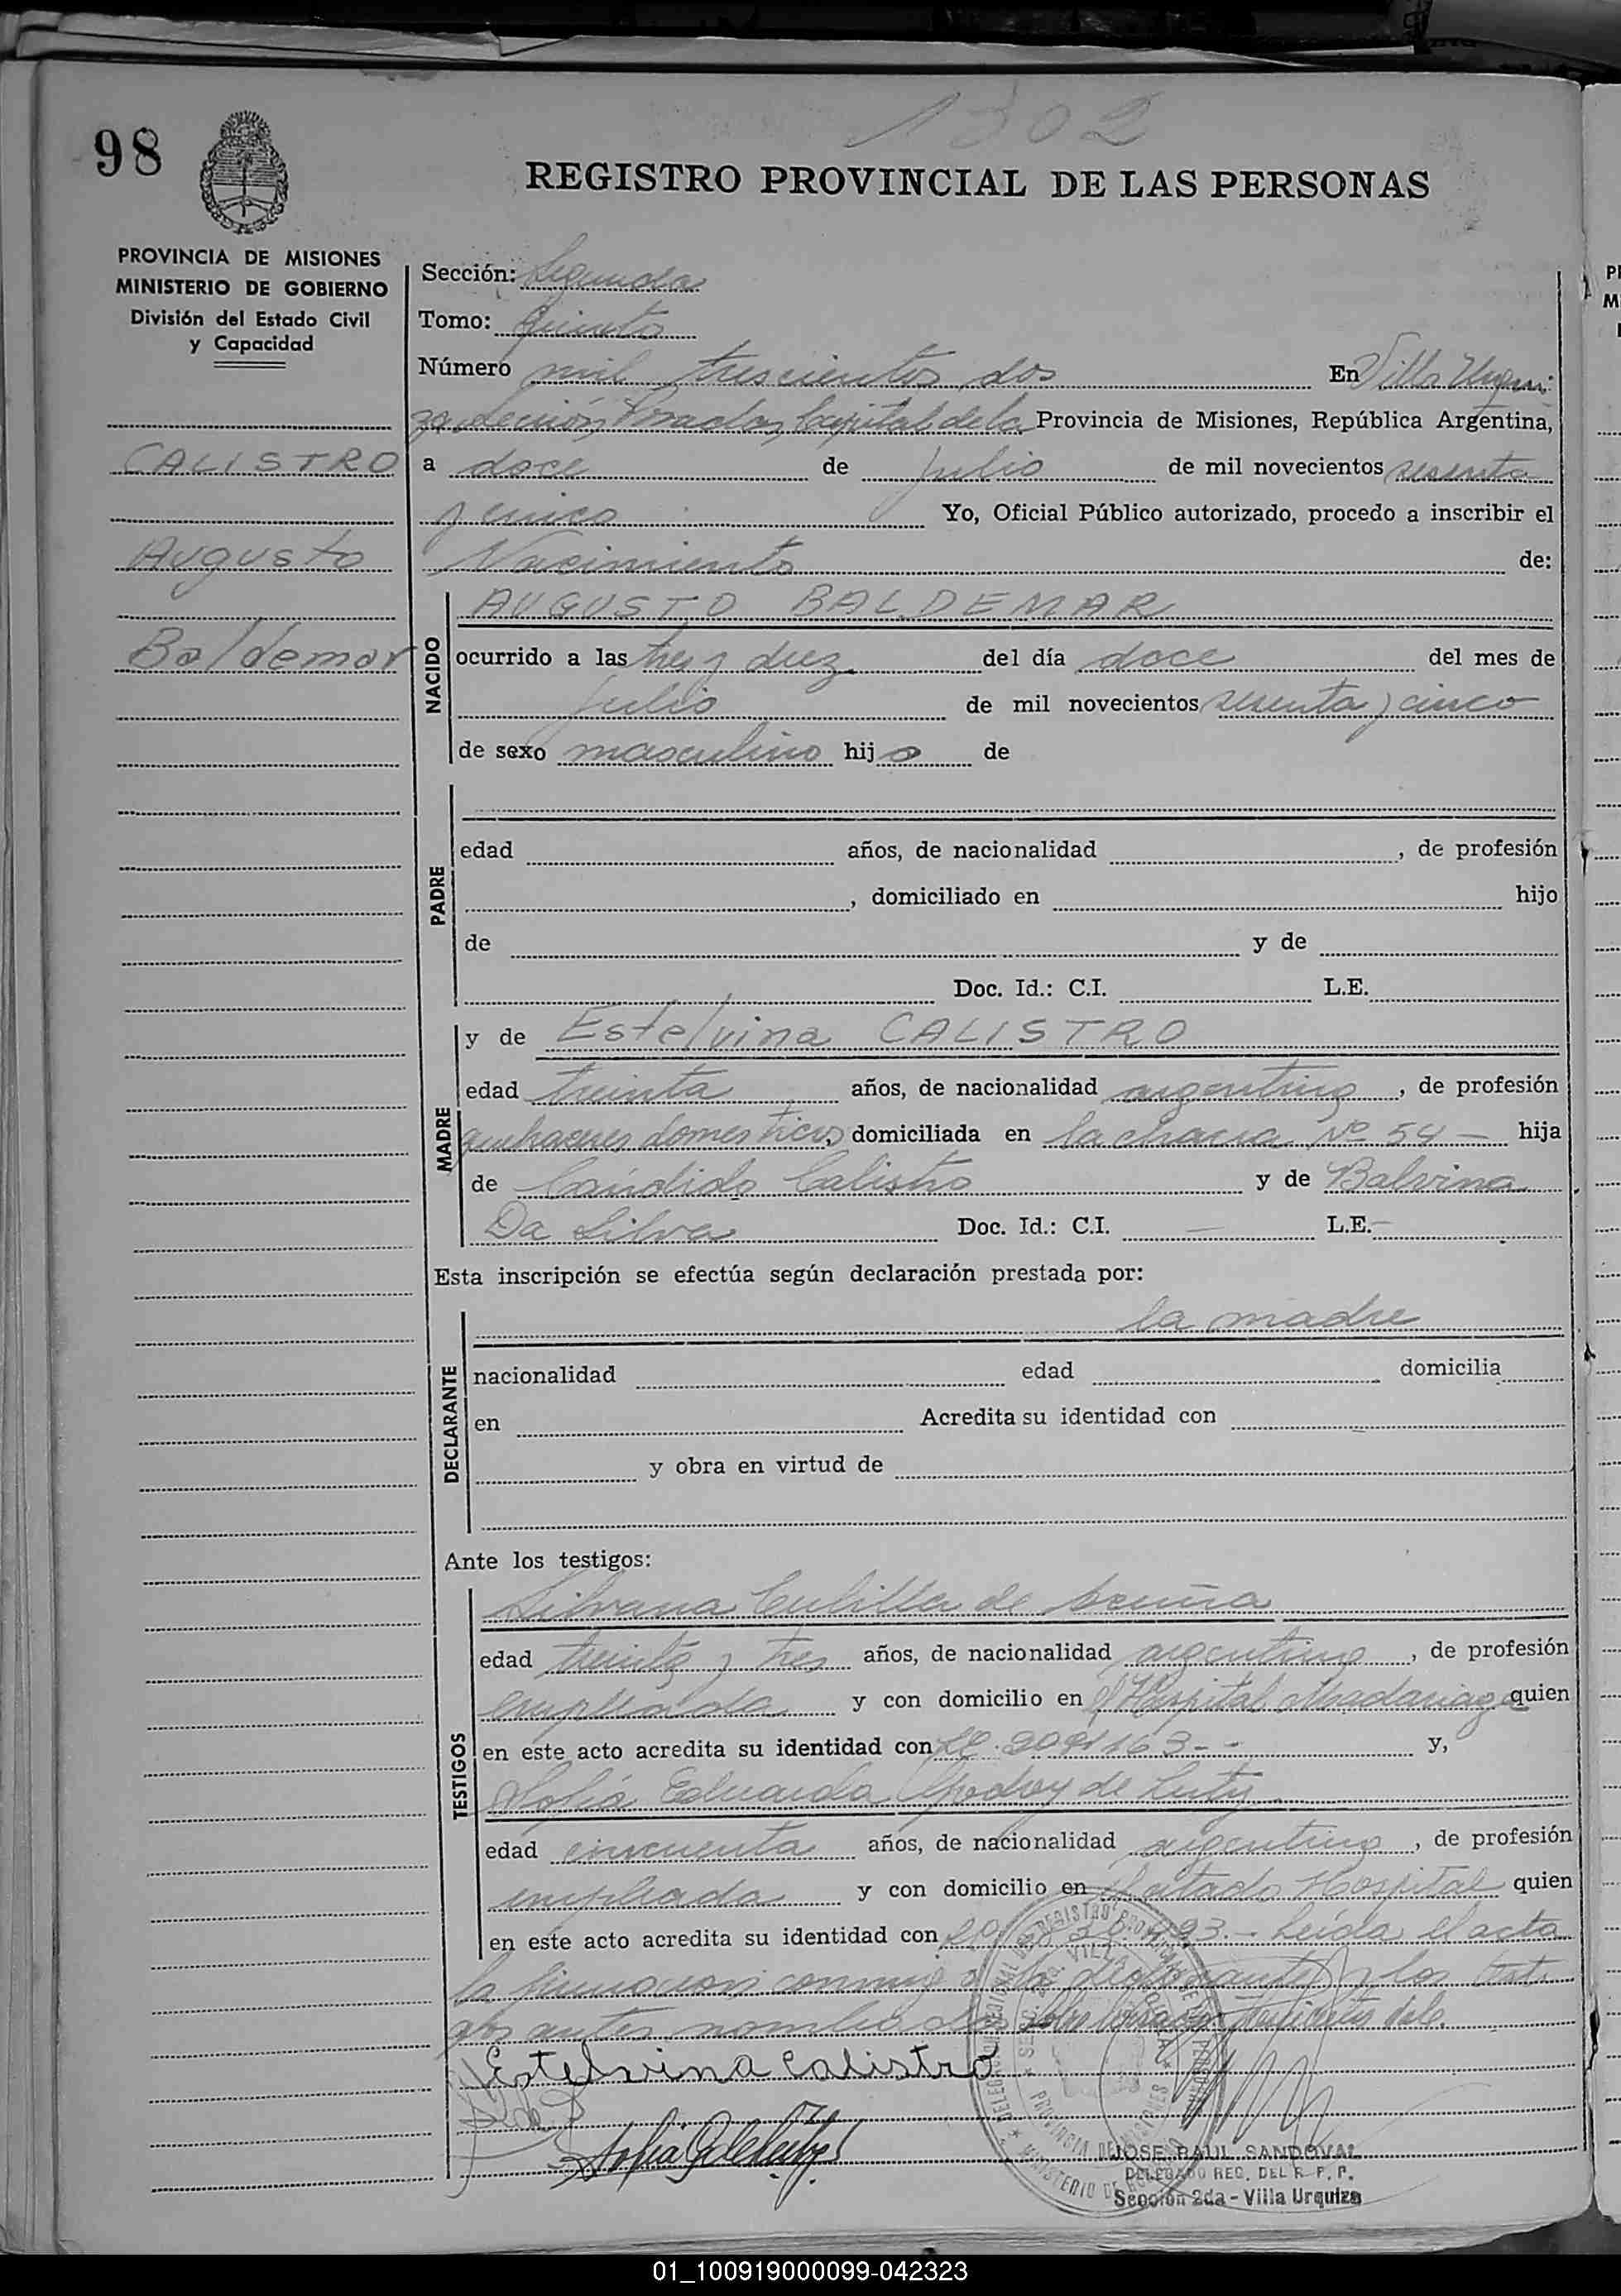 1302
98
REGISTRO PROVINCIAL DE LAS PERSONAS
PROVINCIA DE MISIONES
MINISTERIO DE GOBIERNO
División del Estado Civil
y Capacidad
CALISTRO
Augusto
Baldemar
Sección: Segunda
Tomo: Quinto
Número mil trescientos dos En Villa Urqui-
za, Sección, Posadas, Capital de la Provincia de Misiones, República Argentina,
a doce de Julio de mil novecientos sesenta
y cinco Yo, Oficial Público autorizado, procedo a inscribir el
Nacimiento de:
NACIDO
AUGUSTO BALDEMAR
ocurrido a las tres y diez del día doce del mes de
julio de mil novecientos sesenta y cinco
de sexo masculino hijo de
PADRE
edad años, de nacionalidad , de profesión
, domiciliado en hijo
de y de
Doc. Id.: C.I. L.E.
MADRE
y de Estelvina CALISTRO
edad treinta años, de nacionalidad argentina, de profesión
quehaceres domesticos, domiciliada en la chacra Nº 54 — hija
de Cándido Calistro y de Balvina
Da Silva Doc. Id.: C.I. — L.E. —
Esta inscripción se efectúa según declaración prestada por:
DECLARANTE
la madre
nacionalidad edad domicilia
en Acredita su identidad con
y obra en virtud de
Ante los testigos:
TESTIGOS
Silvana Cubilla de Acuña
edad treinta y tres años, de nacionalidad argentina, de profesión
empleada y con domicilio en el Hospital Madariaga quien
en este acto acredita su identidad con y,
Sofía Eduarda Godoy de Luty
edad cincuenta años, de nacionalidad argentina, de profesión
empleada y con domicilio en citado Hospital quien
en este acto acredita su identidad con .- Leída el acta
la firmaron conmigo la declarante y los testi-
gos antes nombrados
Estelvina Calistro
Sofia G de Luty
JOSE RAUL SANDOVAL
DELEGADO REG. DEL R. P. P.
Sección 2da - Villa Urquiza
01_100919000099-042323